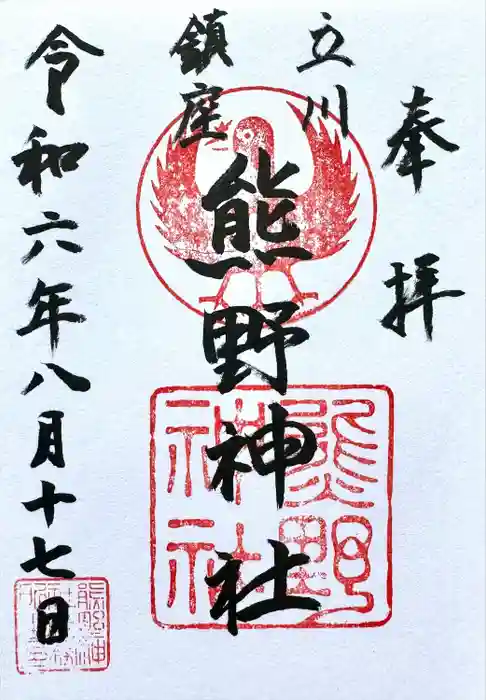 奉拝
立川
鎮座
熊野神社
熊野
神社
令和六年八月十七日